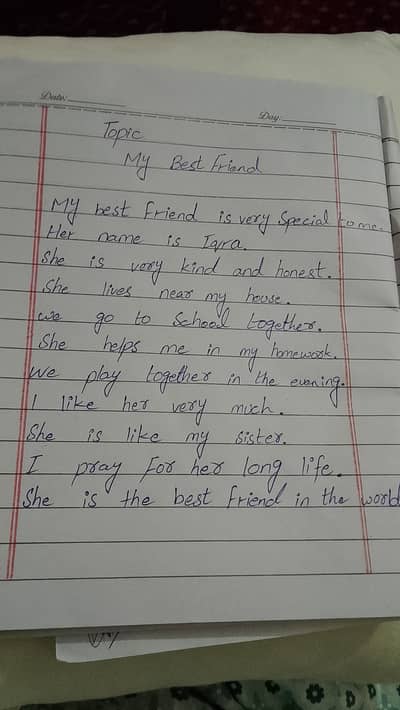 Date:
Day:
Topic
My Best Friend
My best Friend is very Special to me.
Her name is Iqra.
She is very kind and honest.
She lives near my house.
we go to School together.
She helps me in my homework.
We play together in the evening.
I like her very much.
She is like my sister.
I pray For her long life.
She is the best Friend in the world